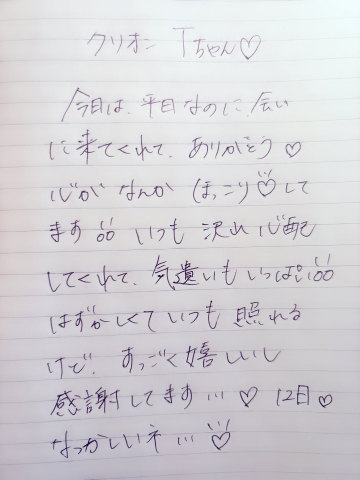 クリオン Tちゃん♡
今日は、平日なのに、会い
に来てくれて、ありがとう♡
心がなんかほっこり♡して
ます!! いつも沢山心配
してくれて、気遣いもいっぱい!!
はずかしくていつも照れる
けど、すっごく嬉しいし
感謝してます…♡ 12日♡
なつかしいネ…♡